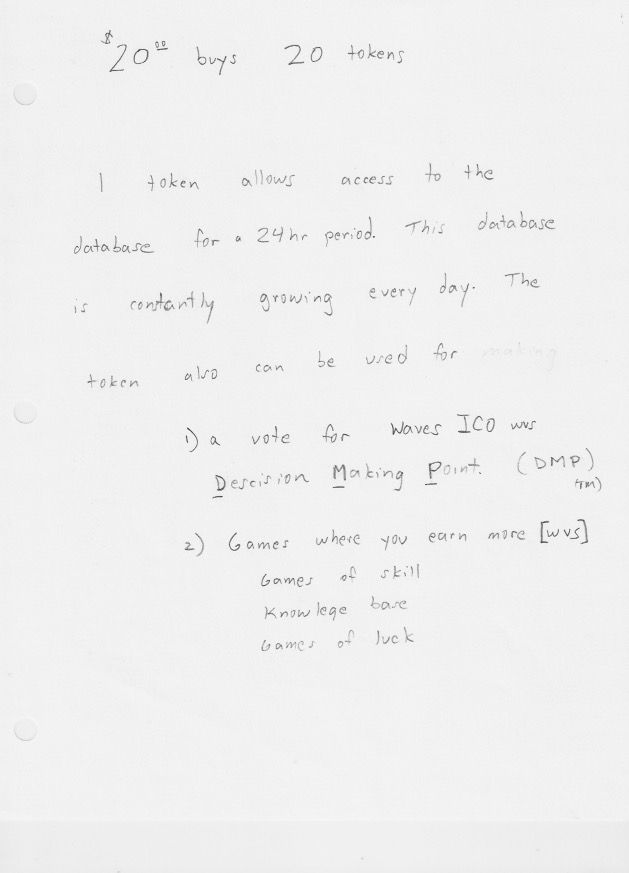 $20.00 buys 20 tokens
1 token allows access to the
database for a 24hr period. This database
is constantly growing every day. The
token also can be used for making
1) a vote for Waves ICO wvs
Descision Making Point. (DMP)
tm)
2) Games where you earn more [wvs]
Games of skill
Knowlege base
Games of luck